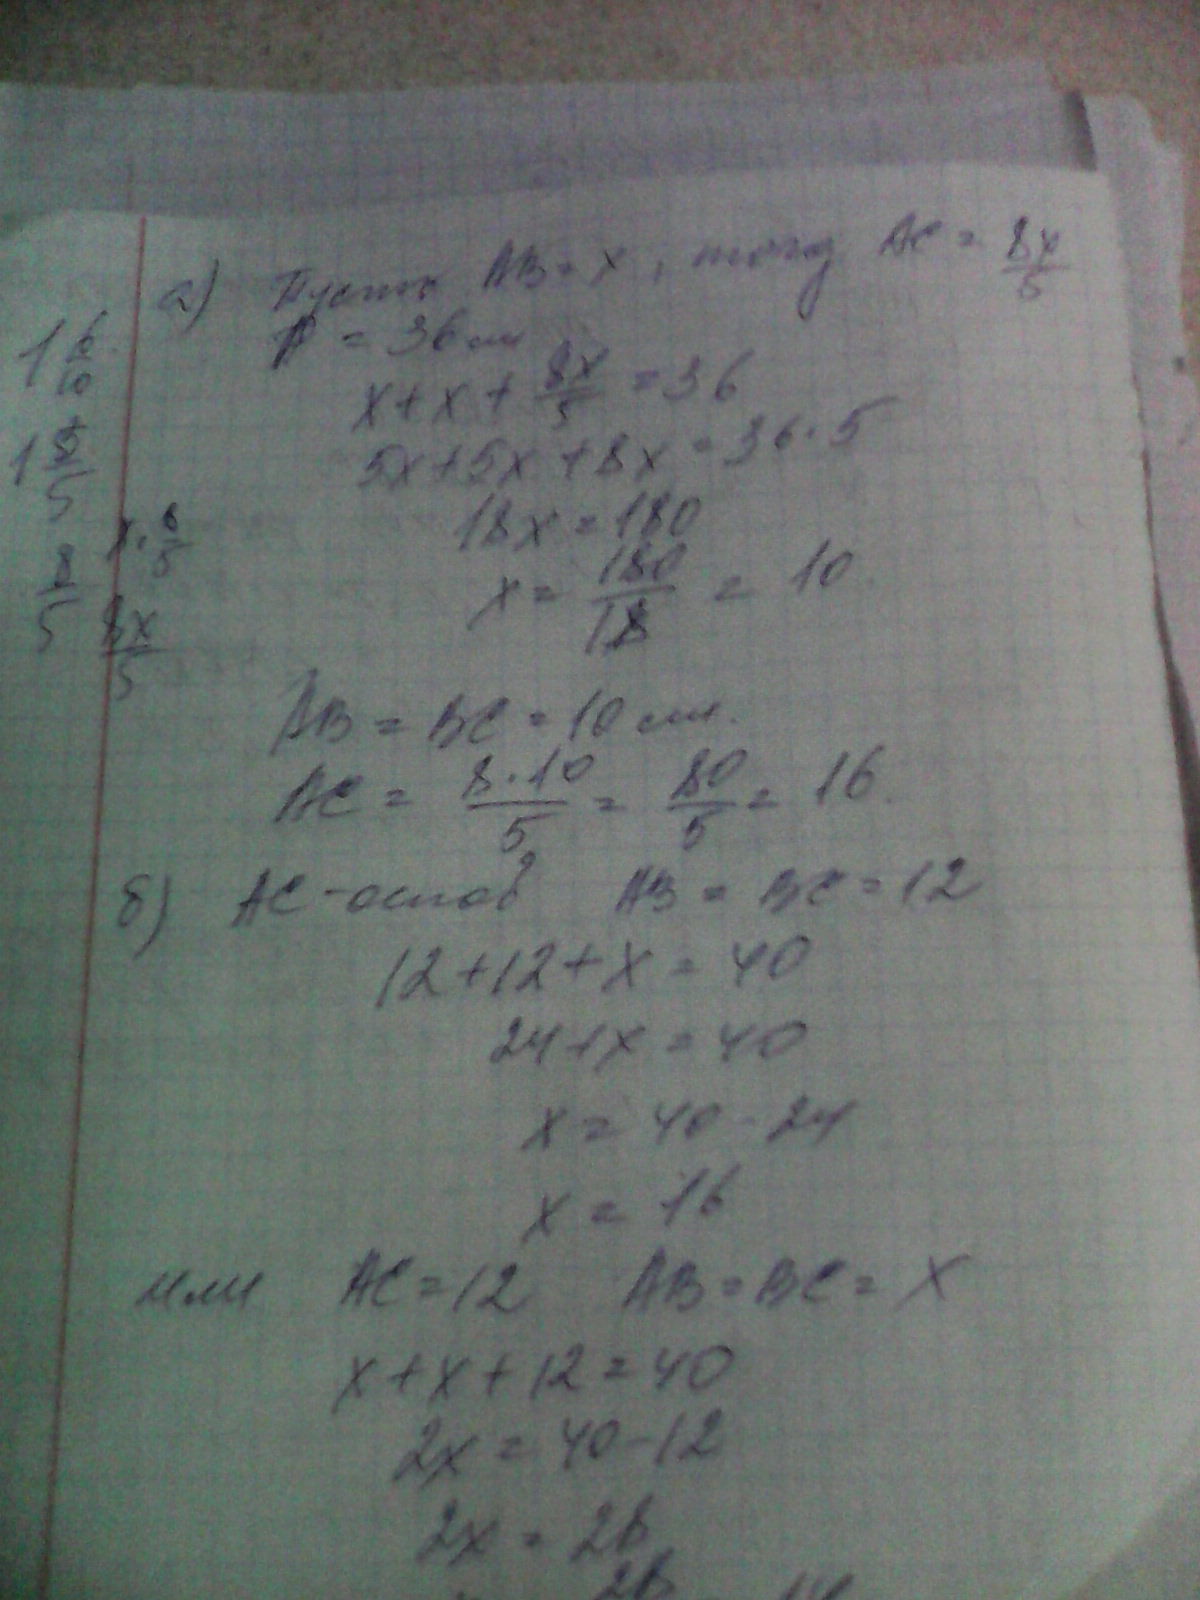 а) Пусть AB = x, тогд AC = 8x/5
P = 36 см
x + x + 8x/5 = 36
5x + 5x + 8x = 36 · 5
18x = 180
x = 180/18 = 10.
1 6/10
1 3/5
8/5
x · 8/5
8x/5
AB = BC = 10 см.
AC = 8·10/5 = 80/5 = 16.
б) AC - основ AB = BC = 12
12 + 12 + x = 40
24 + x = 40
x = 40 - 24
x = 16
или AC = 12 AB = BC = x
x + x + 12 = 40
2x = 40 - 12
2x = 28